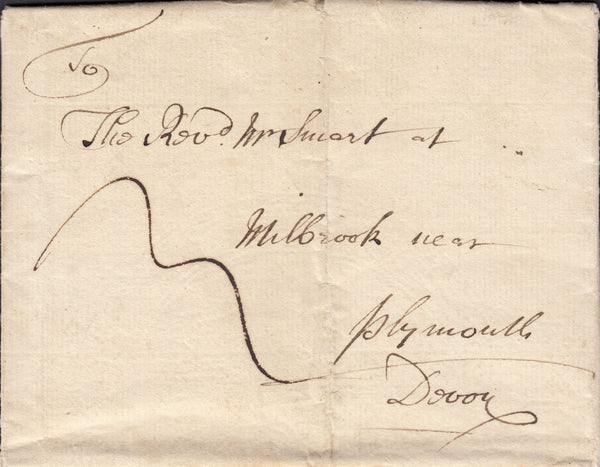 To
The Revd. Mr Smart at
Milbrook near
plymouth
Devon